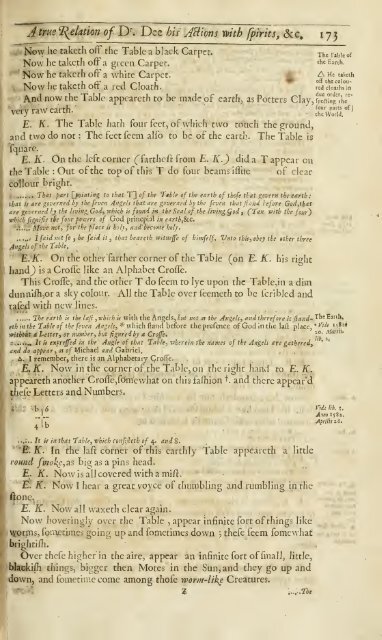 A true Relation of Dr. Dee his Actions with spirits, &c. 173
Now he taketh off the Table a black Carpet.
Now he taketh off a green Carpet.
Now he taketh off a white Carpet.
Now he taketh off a red Cloath.
And now the Table appeareth to be made of earth, as Potters Clay,
very raw earth.
The Table of
the Earth.
Δ. He taketh
off the colou-
red cloaths in
due order, re-
specting the
four parts of
the World.
E. K. The Table hath four feet, of which two touch the ground,
and two do not : The feet seem also to be of the earth. The Table is
square.
E. K. On the left corner (farthest from E. K.) did a T appear on
the Table : Out of the top of this T do four beams issue of clear
collour bright.
...... That part [pointing to that T] of the Table of the earth of those that govern the earth:
that is are governed by the seven Angels that are governed by the seven that stand before God, that
are governed by the living God, which is found in the Seal of the living God, (Tan with the four)
which signifie the four powers of God principal in earth, &c.
...... Move not, for the place is holy, and become holy.
...... I said not so, he said it, that beareth witnesse of himself. Unto this, obey the other three
Angels of the Table.
E. K. On the other farther corner of the Table (on E. K. his right
hand) is a Crosse like an Alphabet Crosse.
This Crosse, and the other T do seem to lye upon the Table, in a dim
dunnish, or a sky colour. All the Table over seemeth to be scribled and
rased with new lines.
...... The earth is the last, which is with the Angels, but not as the Angels, and therefore it stand-
eth in the Table of the seven Angels, * which stand before the presence of God in the last place,
without a Letter, or number, but figured by a Crosse.
The Earth,
* Vide 1582
20. Martii
lib. 2.
...... It is expressed in the Angle of that Table, wherein the names of the Angels are gathered,
and do appear, as of Michael and Gabriel.
I remember, there is an Alphabetary Crosse.
E. K. Now in the corner of the Table, on the right hand to E. K.
appeareth another Crosse, somewhat on this fashion and there appear'd
these Letters and Numbers.
b 6
4 b
Vide lib.
Anno 1582.
Aprilis 28.
...... It is in that Table, which consisteth of 4. and 8.
E. K. In the last corner of this earthly Table appeareth a little
round smoke, as big as a pins head.
E. K. Now is all covered with a mist.
E. K. Now I hear a great voyce of thumbling and rumbling in the
stone.
E. K. Now all waxeth clear again.
Now hoveringly over the Table, appear infinite sort of things like
worms, sometimes going up and sometimes down ; these seem somewhat
brightish.
Over these higher in the aire, appear an infinite sort of small, little,
blackish things, bigger then Motes in the Sun, and they go up and
down, and sometime come among those worm-like Creatures.
Z
......Tor